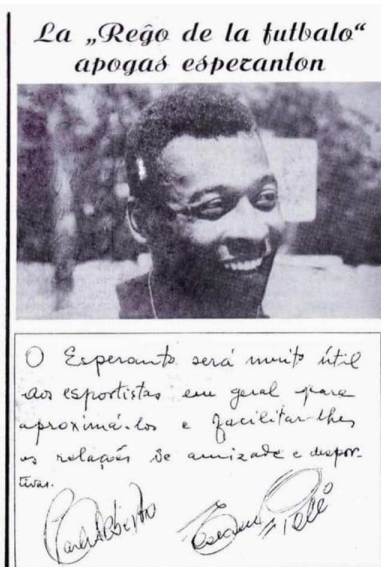 La „Reĝo de la futbalo“
apogas esperanton
O Esperanto será muito útil
aos esportistas em geral para
aproximá-los e facilitar-lhes
as relações de amizade e despor-
tivas.
Pelé